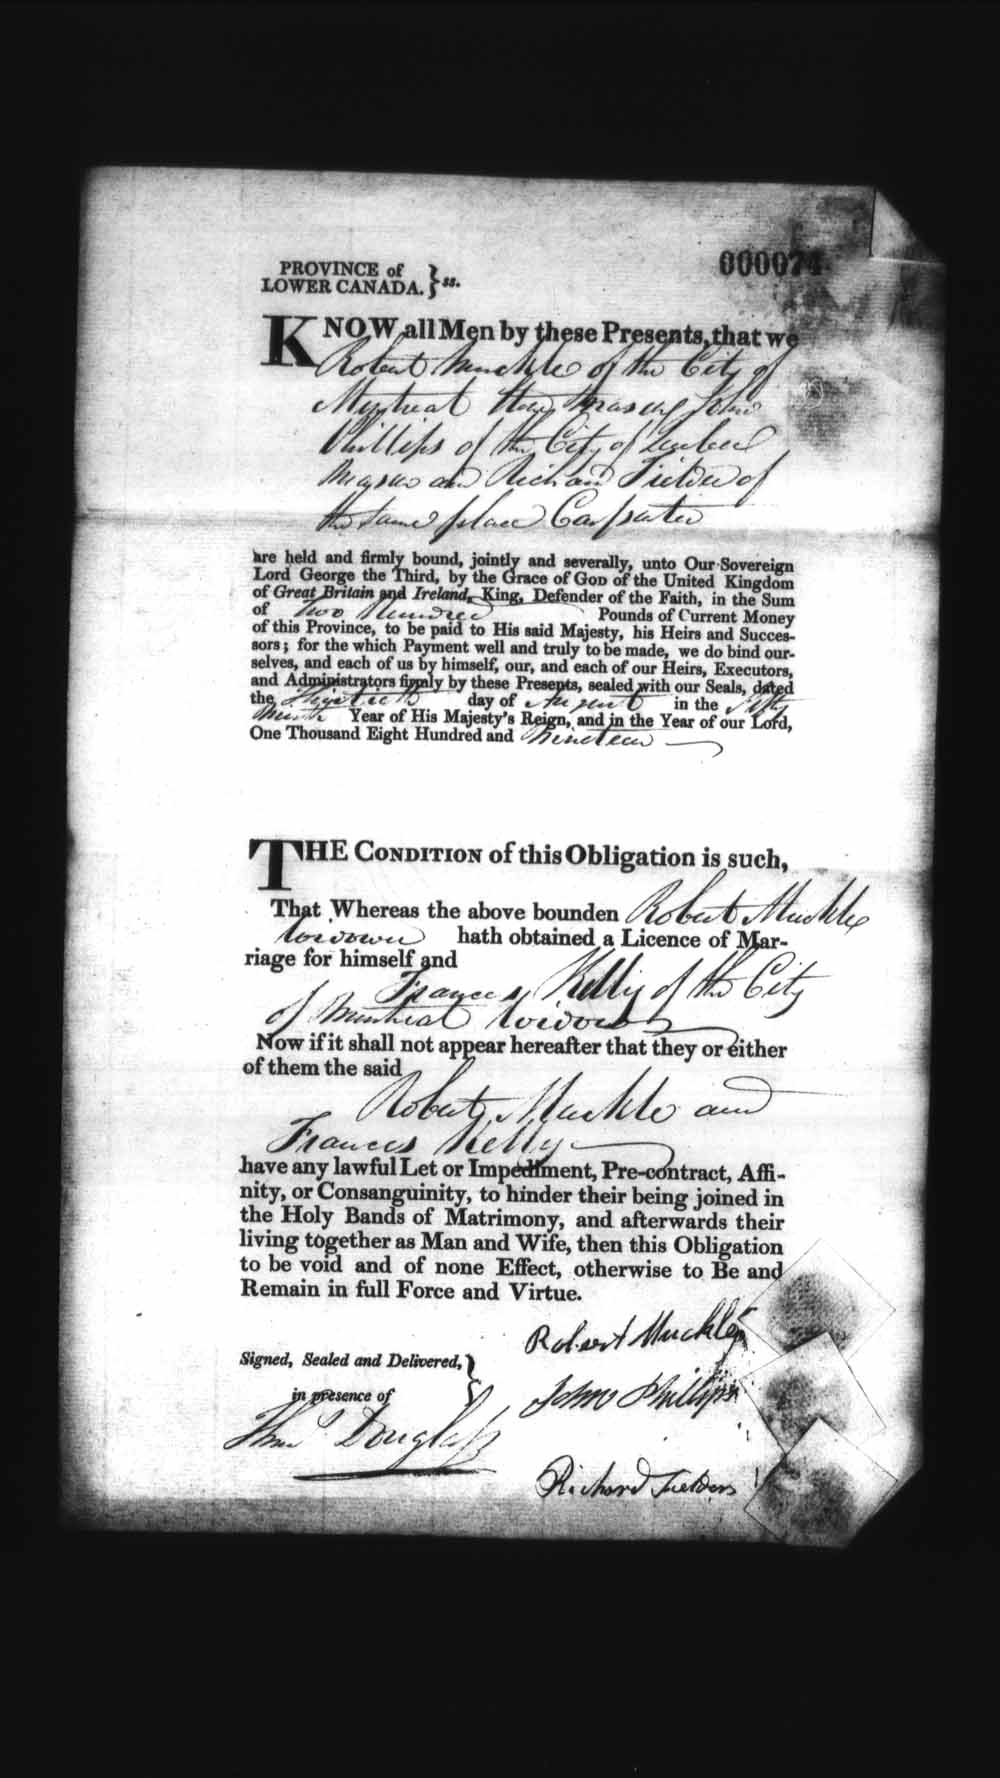 000074
PROVINCE of
LOWER CANADA. } ss.
KNOW all Men by these Presents, that we
Robert Muckle of the City of
Montreal Stone Mason John
Phillips of the City of Quebec
Mason and Richard Fielders of
the same place Carpenter
are held and firmly bound, jointly and severally, unto Our Sovereign
Lord George the Third, by the Grace of God of the United Kingdom
of Great Britain and Ireland, King, Defender of the Faith, in the Sum
of Two Hundred Pounds of Current Money
of this Province, to be paid to His said Majesty, his Heirs and Succes-
sors; for the which Payment well and truly to be made, we do bind our-
selves, and each of us by himself, our, and each of our Heirs, Executors,
and Administrators firmly by these Presents, sealed with our Seals, dated
the day of August in the Fifty
Ninth Year of His Majesty's Reign, and in the Year of our Lord,
One Thousand Eight Hundred and Nineteen
THE CONDITION of this Obligation is such,
That Whereas the above bounden Robert Muckle
Widower hath obtained a Licence of Mar-
riage for himself and
Frances Kelly of the City
of Montreal Widow
Now if it shall not appear hereafter that they or either
of them the said
Robert Muckle and
Frances Kelly
have any lawful Let or Impediment, Pre-contract, Affi-
nity, or Consanguinity, to hinder their being joined in
the Holy Bands of Matrimony, and afterwards their
living together as Man and Wife, then this Obligation
to be void and of none Effect, otherwise to Be and
Remain in full Force and Virtue.
Robert Muckle
Signed, Sealed and Delivered, }
John Phillips
in presence of
Thos Douglass
Richard Fielders